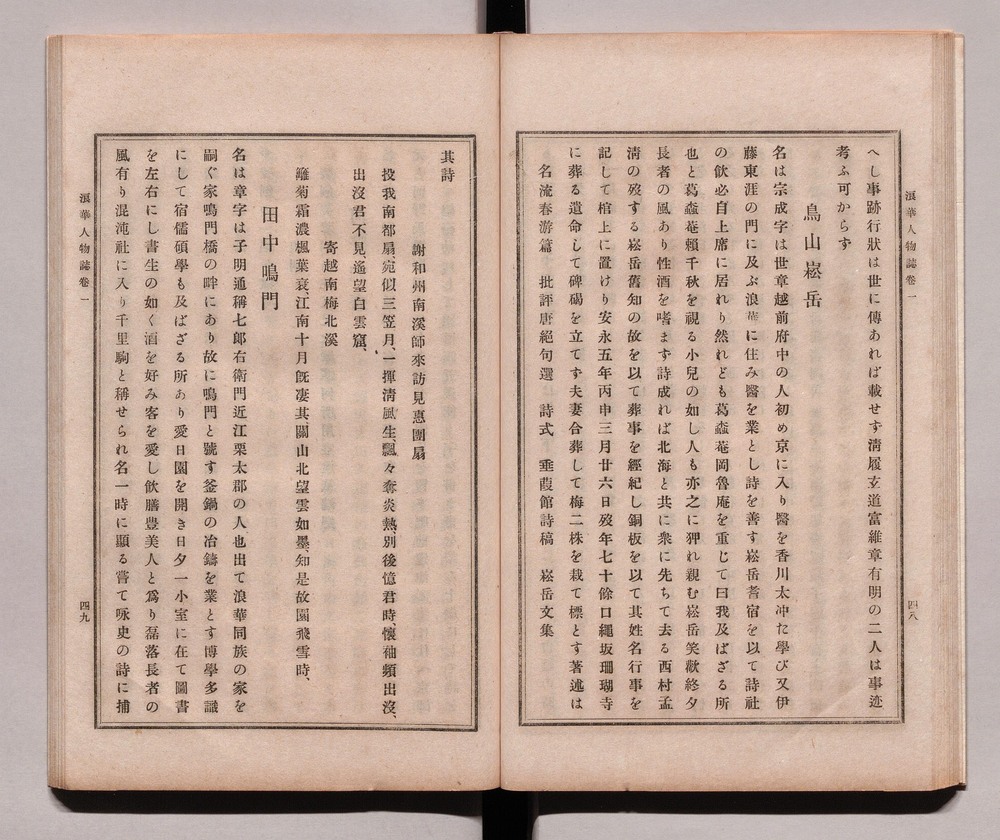 浪華人物誌卷一
四八
へし事跡行狀は世に傳あれば載せず淸履玄道富維章有明の二人は事迹
考ふ可からず
鳥山崧岳
名は宗成字は世章越前府中の人初め京に入り醫を香川太冲に學び又伊
藤東涯の門に及ぶ浪華に住み醫を業とし詩を善す崧岳耆宿を以て詩社
の飮必自上席に居れり然れども葛蠧菴岡魯庵を重じて曰我及ばざる所
也と葛蠧菴賴千秋を視る小兒の如し人も亦之に狎れ親む崧岳笑歡終夕
長者の風あり性酒を嗜ます詩成れば北海と共に衆に先ちて去る西村孟
淸の歿する崧岳舊知の故を以て葬事を經紀し銅板を以て其姓名行事を
記して棺上に置けり安永五年丙申三月廿六日歿年七十餘口繩坂珊瑚寺
に葬る遺命して碑碣を立てず夫妻合葬して梅二株を栽て標とす著述は
名流春游篇 批評唐絕句選 詩式 垂葭館詩稿 崧岳文集
其詩
謝和州南溪師來訪見惠團扇
投我南都扇、宛似三笠月、一揮淸風生、飄々奪炎熱、別後憶君時、懷袖頻出沒、
出沒君不見、遙望白雲窟、
寄越南梅北溪
籬菊霜濃楓葉衰江南十月旣凄其關山北望雲如墨、知是故園飛雪時、
田中鳴門
名は章字は子明通稱七郞右衛門近江栗太郡の人也出て浪華同族の家を
嗣ぐ家鳴門橋の畔にあり故に鳴門と號す釜鍋の冶鑄を業とす博學多識
にして宿儒碩學も及ばざる所あり愛日園を開き日夕一小室に在て圖書
を左右にし書生の如く酒を好み客を愛し飮膳豊美人と爲り磊落長者の
風有り混沌社に入り千里駒と稱せられ名一時に顯る嘗て咏史の詩に捕
浪華人物誌卷一
四九